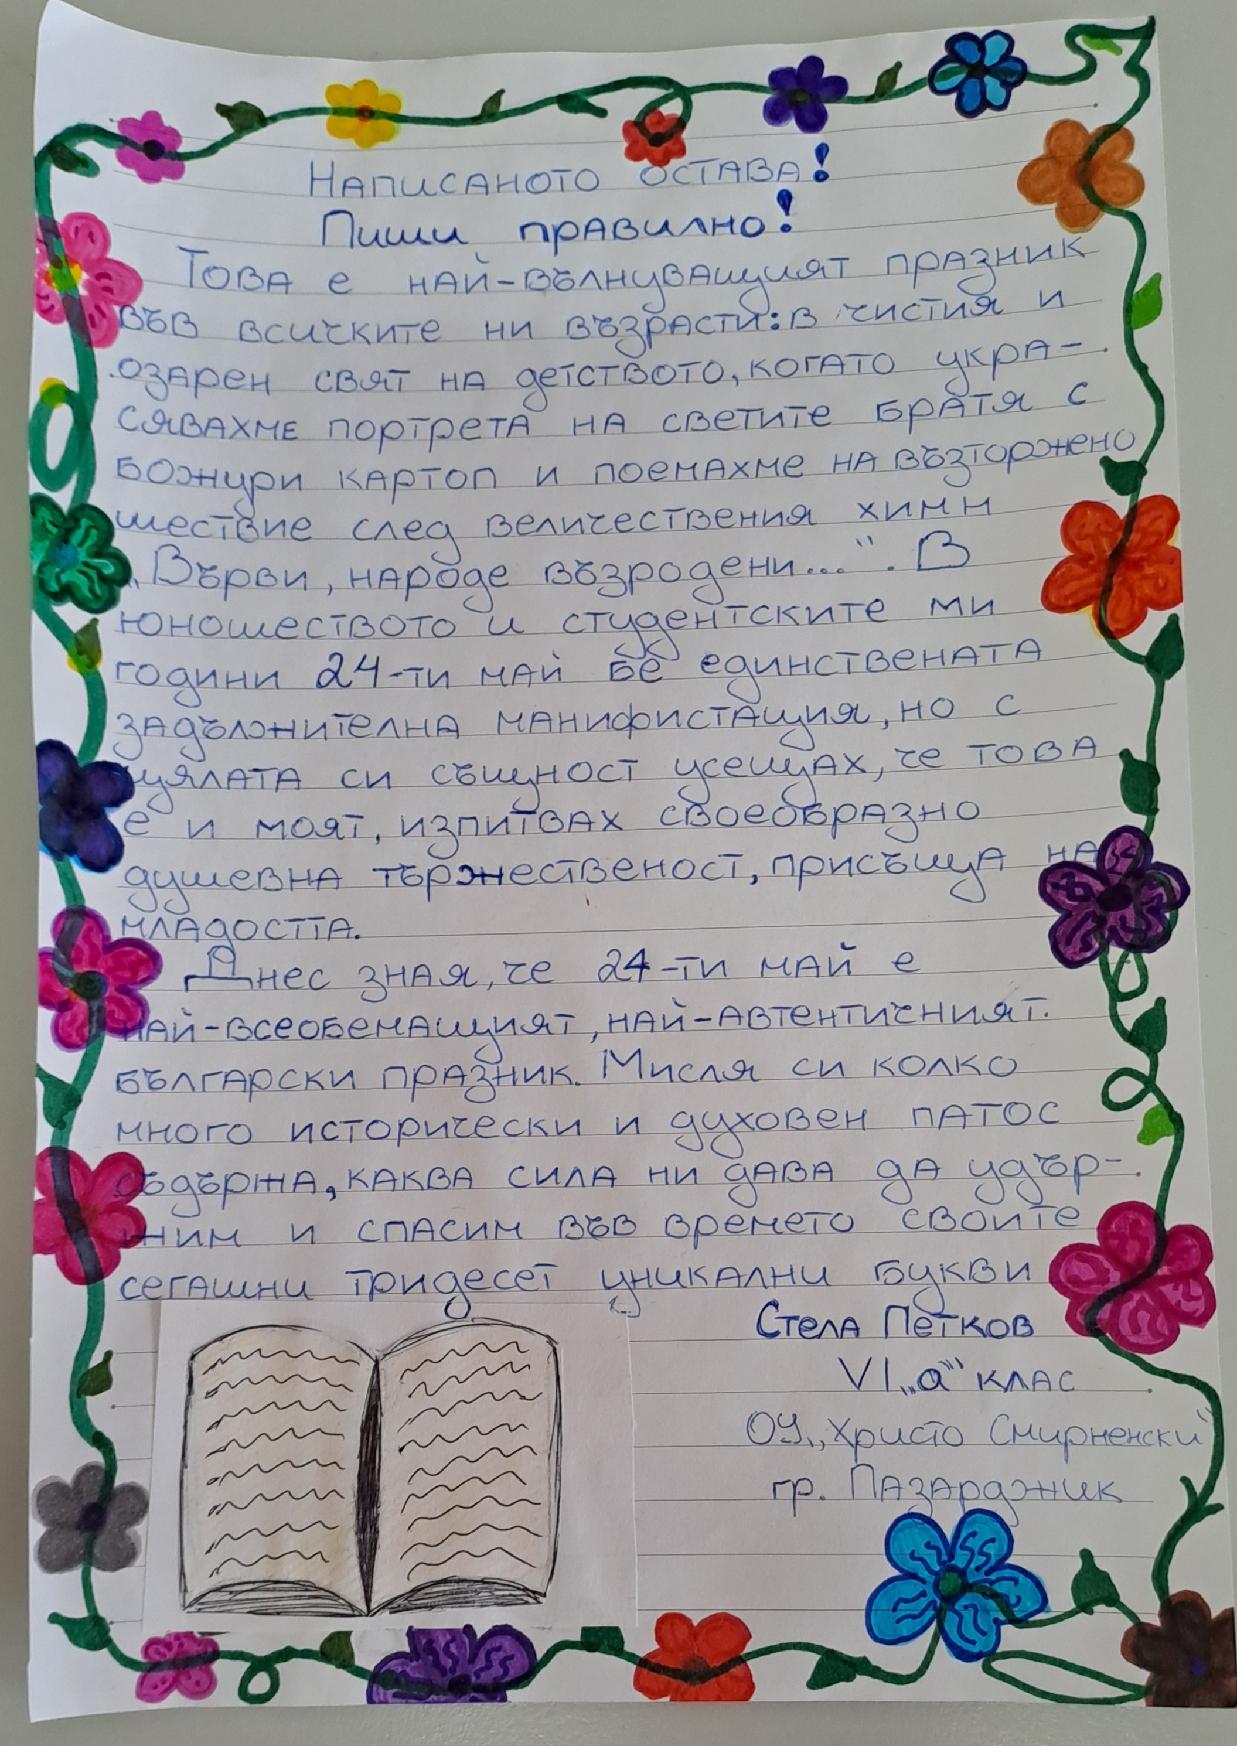 Написаното остава!
Пиши правилно!
Това е най-вълнуващият празник
във всичките ни възрасти: в чистия и
озарен свят на детството, когато укра-
сявахме портрета на светите братя с
божури картоп и поемахме на възторжено
шествие след величествения химн
„Върви, народе възродени...“. В
юношеството и студентските ми
години 24-ти май бе единствената
задължителна манифистация, но с
цялата си същност усещах, че това
е и моят, изпитвах своеобразно
душевна тържественост, присъща на
младостта.
Днес зная, че 24-ти май е
най-всеобемащият, най-автентичният
български празник. Мисля си колко
много исторически и духовен патос
съдържа, каква сила ни дава да удър-
жим и спасим във времето своите
сегашни тридесет уникални букви
Стела Петков
VI „а“ клас
ОУ „Христо Смирненски“
гр. Пазарджик